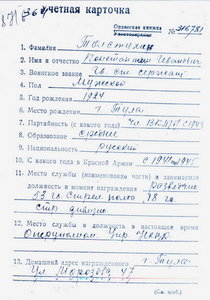 Учетная карточка
Орденская книжка
Удостоверение
№ 316781
1. Фамилия Толстухин
2. Имя и отчество Константин Иванович
3. Воинское звание Гв. ст. сержант
4. Пол Мужской
5. Год рождения 1924
6. Место рождения г. Тула
7. Партийность (с какого года)
8. Образование среднее
9. Национальность русский
10. С какого года в Красной Армии с 1941 по 1945
11. Место службы (наименование части) и занимаемая
должность в момент награждения разведчик
53 гв. стрелк. полка 18 гв.
стр. дивизии
12. Место службы и должность в настоящее время
13. Домашний адрес награжденного г. Тула
ул. Морозова 47
(См. на об.)